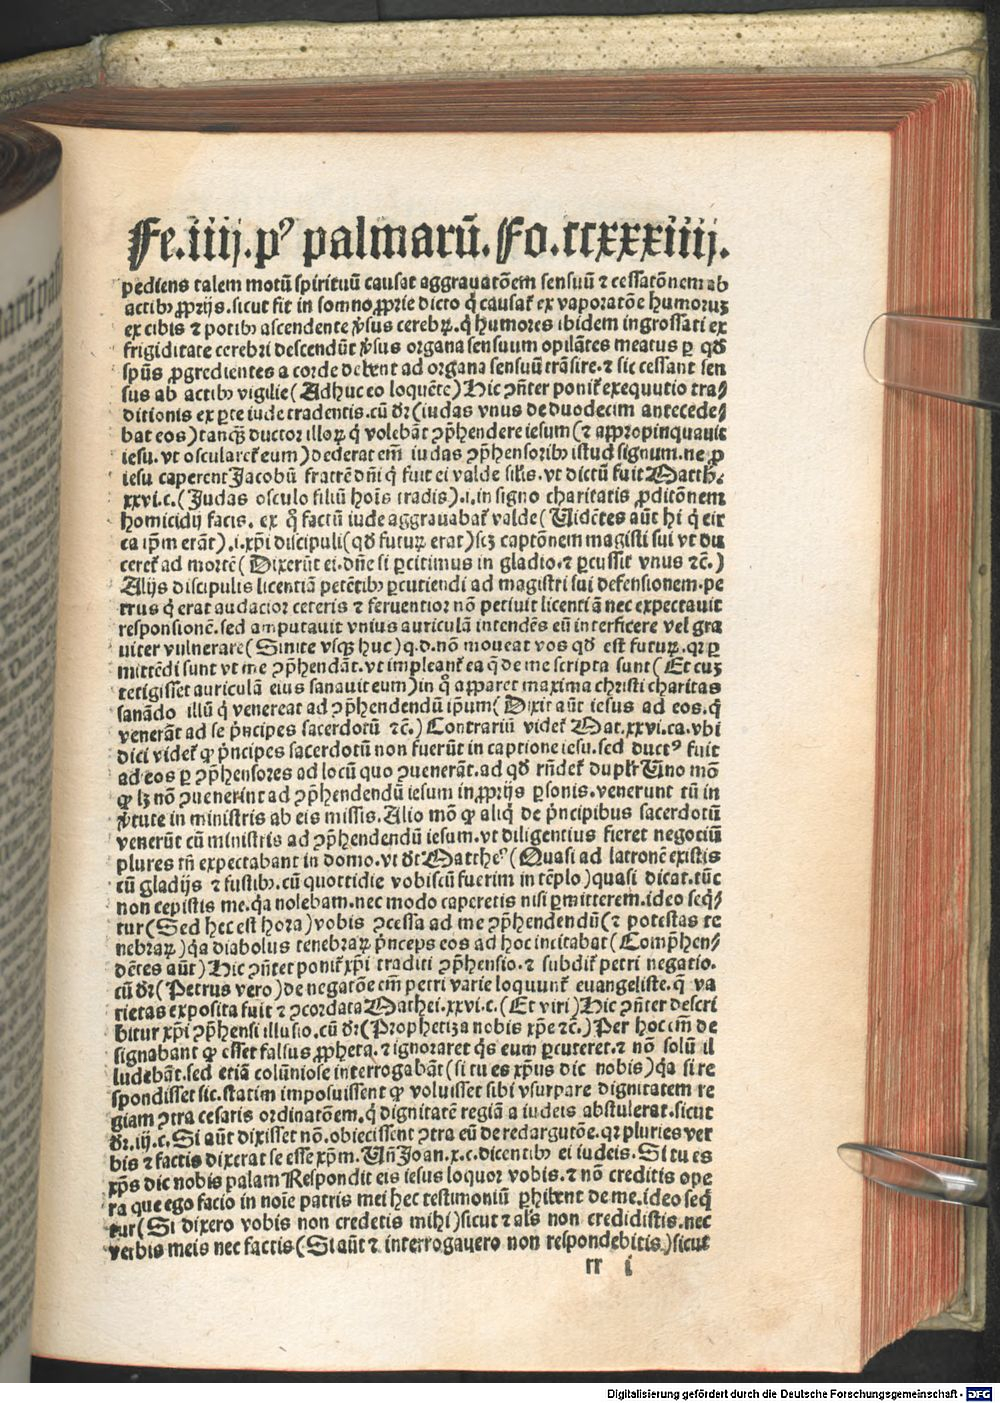 Fe.iiij.pꝰ palmarū. Fo.ccxxxiiij.
pediens talem motū spirituū causat aggrauatōem sensuū ⁊ cessatōnem ab
actibꝫ ꝓprijs. sicut fit in somno ꝓprie dicto q̇ causat̄ ex vaporatōe humoruꝫ
ex cibis ⁊ potibꝫ ascendente ṽsus cerebꝝ. q̇ humores ibidem ingrossati ex
frigiditate cerebri descendūt ṽsus organa sensuum opilātes meatus ꝑ qđ
spūs ꝓgredientes a corde debent ad organa sensuū trāsire. ⁊ sic cessant sen
sus ab actibꝫ vigilie (Adhuc eo loquēte) Hic ꝯn̄ter ponit̄ exequutio tra⸗
ditionis ex ꝑte iude tradentis. cū dr̄ (iudas vnus de duodecim antecede⸗
bat eos) tanqꝫ ductor illoꝝ q̇ volebāt ꝯp̄hendere iesum (⁊ appropinquauit
iesu. vt oscularet̄ eum) dederat em̄ iudas ꝯp̄hensoribꝫ istud signum. ne ꝓ
iesu caperent Jacobū fratrē dn̄i q̇ fuit ei valde sil̄is. vt dictū fuit Matth.
xxvi.c. (Judas osculo filiū hoīs tradis) .i. in signo charitatis ꝓditōnem
homicidij facis. ex q̊ factū iude aggrauabat̄ valde (Uidētes aūt hi q̇ cir
ca ip̄m erāt) .i. xp̄i discipuli (qđ futuꝝ erat) scꝫ captōnem magisti sui vt du
ceret̄ ad mortē (Dixerūt ei. dn̄e si ꝑcutimus in gladio. ⁊ ꝑcussit vnus ⁊c̄.)
Alijs discipulis licentiā petētibꝫ ꝑcutiendi ad magistri sui defensionem. pe
trus q̇ erat audacior ceteris ⁊ feruentior nō petiuit licentiā nec expectauit
responsionē. sed amputauit vnius auriculā intendēs eū interficere vel gra
uiter vulnerare (Sinite vsqꝫ huc) q.d. nō moueat vos qđ est futuꝝ. qꝛ ꝑ
mittēdi sunt vt me ꝯp̄hendāt. vt impleant̄ ea q̄ de me scripta sunt (Et cuꝫ
tetigisset auriculā eius sanauit eum) in q̊ apparet maxima christi charitas
sanādo illū q̇ venereat ad ꝯp̄hendendū ip̄um (Dixit aūt iesus ad eos. q̇
venerāt ad se ṗncipes sacerdotū ⁊c̄.) Contrariū videt̄ Mat.xxvi.ca. vbi
dici videt̄ ꝙ ṗncipes sacerdotū non fuerūt in captione iesu. sed ductꝰ fuit
ad eos ꝑ ꝯp̄hensores ad locū quo ꝯuenerāt. ad qđ rn̄det̄ duplr̄ Uno mō
ꝙ lꝫ nō ꝯuenerint ad ꝯp̄hendendū iesum in ꝓprijs ꝑsonis. venerunt tn̄ in
ṽtute in ministris ab eis missis. Alio mō ꝙ aliq̇ de ṗncipibus sacerdotū
venerūt cū ministris ad ꝯp̄hendendū iesum. vt diligentius fieret negociū
plures tn̄ expectabant in domo. vt dr̄ Mattheꝰ (Quasi ad latronē existis
cū gladijs ⁊ fustibꝫ. cū quottidie vobiscū fuerim in tēplo) quasi dicat. tūc
non cepistis me. q̇a nolebam. nec modo caperetis nisi ꝑmitterem. ideo seq̇⸗
tur (Sed hec est hora) vobis ꝯcessa ad me ꝯp̄hendendū (⁊ potestas te
nebraꝝ) q̇a diabolus tenebraꝝ ṗnceps eos ad hoc incitabat (Comp̄hen⸗
dētes aūt) Hic ꝯn̄ter ponit̄ xp̄i traditi ꝯp̄hensio. ⁊ subdit̄ petri negatio.
cū dr̄ (Petrus vero) de negatōe em̄ petri varie loquunt̄ euangeliste. q̄ va
rietas exposita fuit ⁊ ꝯcordata Mathei.xxvi.c. (Et viri) Hic ꝯn̄ter descri
bitur xp̄i ꝯp̄hensi illusio. cū dr̄ (Prophetiza nobis xp̄e ⁊c̄.) Per hoc em̄ de
signabant ꝙ esset falsus ꝓpheta. ⁊ ignoraret q̇s eum ꝑcuteret. ⁊ nō solū il
ludebāt. sed etiā colūniose interrogabāt (si tu es xp̄us dic nobis) q̇a si re
spondisset sic. statim imposuissent ꝙ voluisset sibi vsurpare dignitatem re
giam ꝯtra cesaris ordinatōem. q̇ dignitatē regiā a iudeis abstulerat. sicut
dr̄.iij.c. Si aūt dixisset nō. obiecissent ꝯtra eū de redargutōe. qꝛ pluries ver
bis ⁊ factis dixerat se esse xp̄m. Un̄ Joan.x.c. dicentibꝫ ei iudeis. Si tu es
xp̄s dic nobis palam Respondit eis iesus loquor vobis. ⁊ nō creditis ope
ra que ego facio in noīe patris mei hec testimoniū ꝑhibent de me. ideo seq̇
tur (Si dixero vobis non credetis mihi) sicut ⁊ al̄s non credidistis. nec
verbis meis nec factis (Si aūt ⁊ interrogauero non respondebitis) sicut
rr i
Digitalisierung gefördert durch die Deutsche Forschungsgemeinschaft - DFG